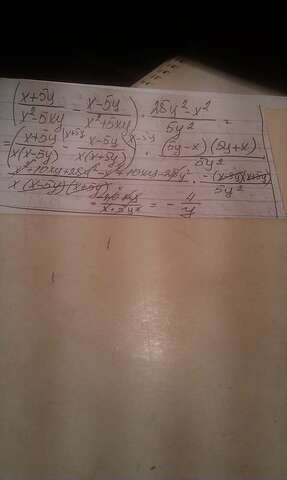 (x+5y/x²-5xy - x-5y/x²+5xy) · 25y²-x²/5y² =
= (x+5y/x(x-5y) |x+5y - x-5y/x(x+5y) |x-5y) · (5y-x)(5y+x)/5y²
x²+10xy+25y²-x²+10xy-25y²/x(x-5y)(x+5y) · -(x-5y)(x+5y)/5y²
= - 4/y